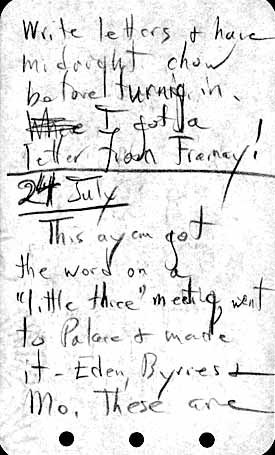 Write letters & have
midnight chow
before turning in.
I got a
letter from Franny!
24 July
This a.m. got
the word on a
"little three" meeting, went
to Palace & made
it - Eden, Byrnes &
Mo. These are